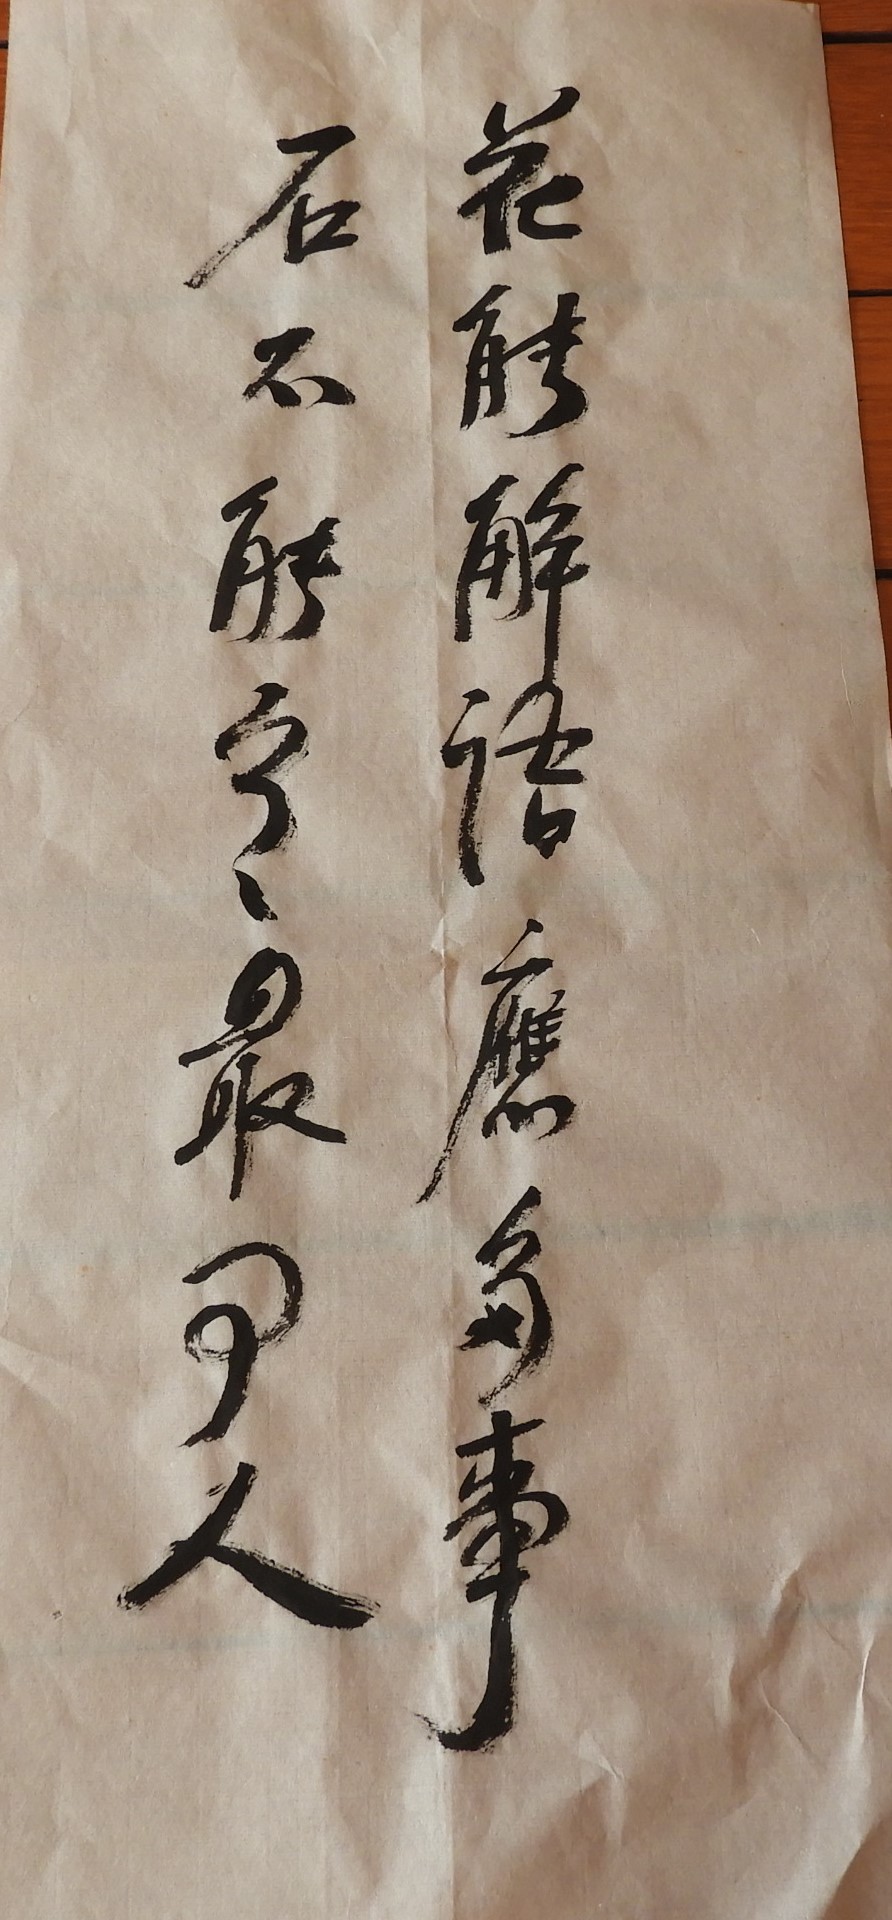 花能解語應多事
石不能言最可人